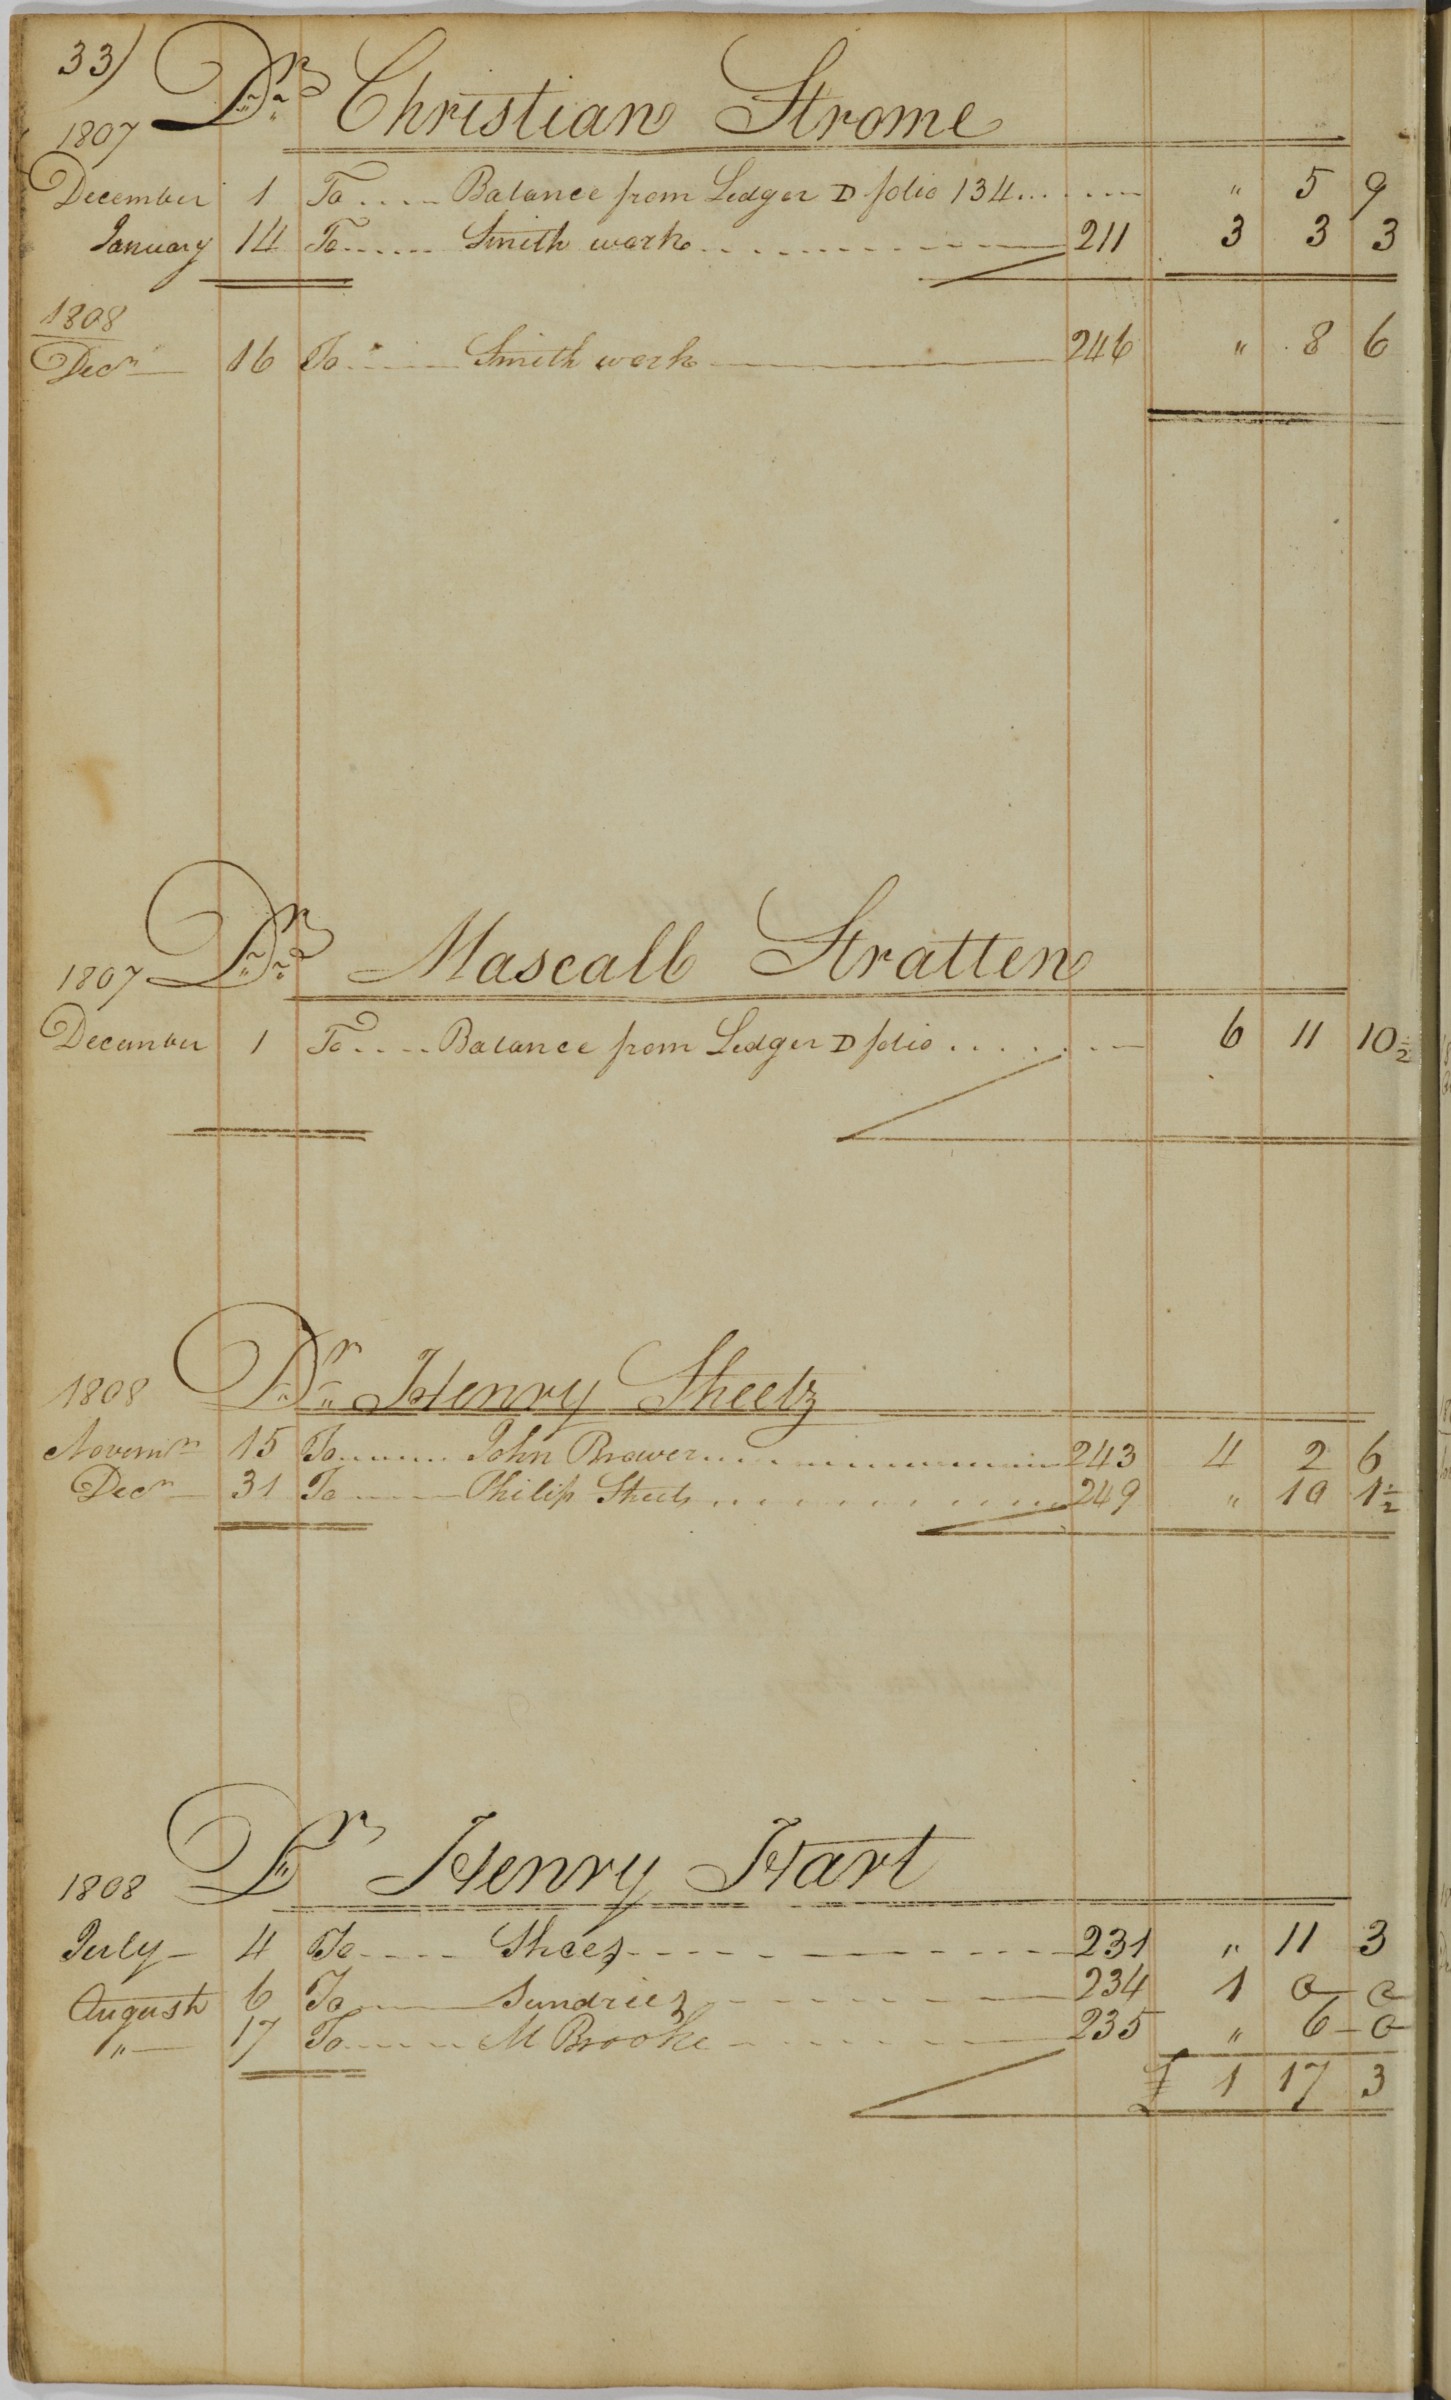 33)
1807 Dr Christian Strome
December 1 To .... Balance from Ledger D folio 134 ... " 5 9
January 14 To ..... Smith work ..... 211 3 3 3
1808
Decr 16 To ..... Smith work 246 " 8 6
1807 Dr Mascall Stratten
December 1 To .... Balance from Ledger D folio ..... 6 11 10½
1808 Dr Henry Sheetz
Novemr 15 To ..... John Brower ..... 243 4 2 6
Decr 31 To ..... Philip Sheets ..... 249 " 10 1½
1808 Dr Henry Hart
July 4 To ..... Shoes ..... 231 " 11 3
August 6 To ..... Sundries ..... 234 1 0 0
" 17 To ..... M Brooke ..... 235 " 6 0
£ 1 17 3